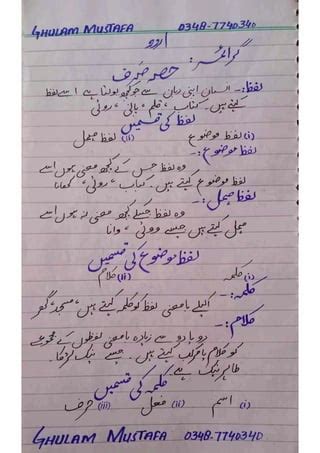 GHULAM MUSTAFA 0348-7740340
اردو
گرائمر: حصہ صرف
لفظ:- انسان اپنی زبان سے جو کچھ بولتا ہے اسے لفظ
کہتے ہیں۔ کتاب، قلم، پانی، روٹی
لفظ کی قسمیں
(i) لفظ موضوع (ii) لفظ مہمل
لفظ موضوع:-
وہ لفظ جس کے کچھ معنی ہوں اسے
لفظ موضوع کہتے ہیں۔ کباب، روٹی، کھانا
لفظ مہمل:-
وہ لفظ جسکے کچھ معنی نہ ہوں اسے
مہمل کہتے ہیں جیسے ووٹی، وانا
لفظ موضوع کی قسمیں
(i) کلمہ (ii) کلام
کلمہ:-
اکیلے بامعنی لفظ کو کلمہ کہتے ہیں، مسجد، گھر
کلام:-
دو یا دو سے زیادہ بامعنی لفظوں کے مجموعے
کو کلام یا مرکب کہتے ہیں۔ جیسے نیک لڑکا۔
طاہر نیک ہے
کلمہ کی قسمیں
(i) اسم (ii) فعل (iii) حرف
GHULAM MUSTAFA 0348-7740340